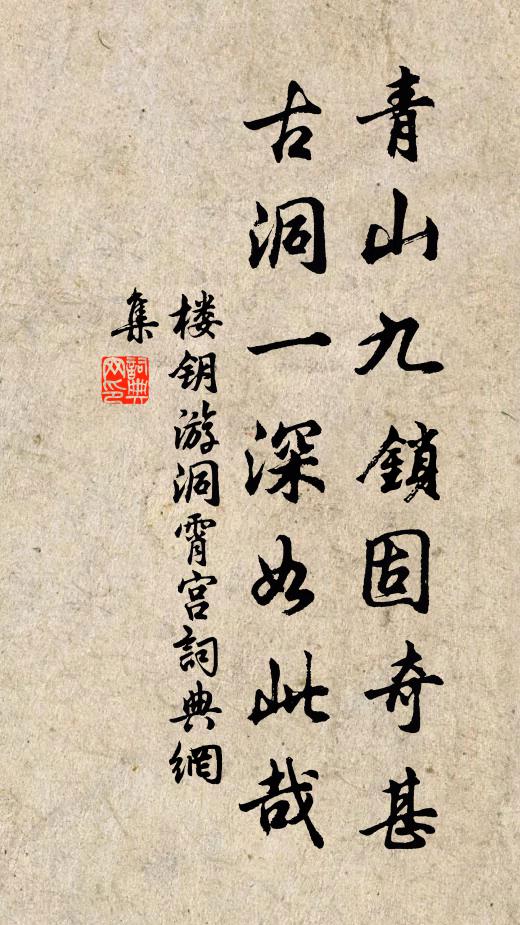 青山九鎖固奇甚
古洞一深如此哉
楼钥游洞霄宫詞典網
集
詞典网印